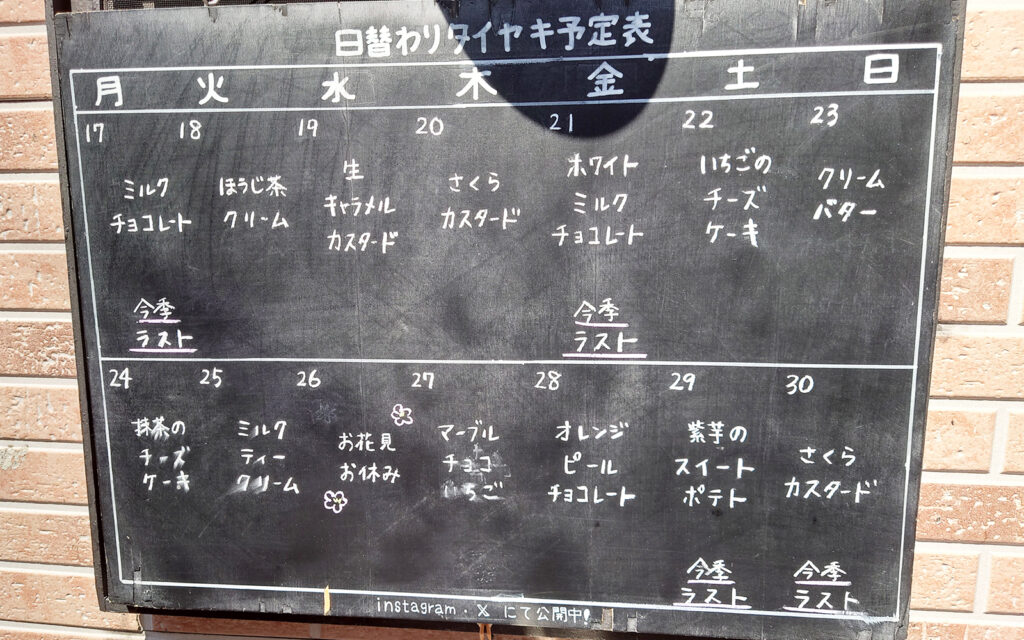 日替わりタイヤキ予定表
月 火 水 木 金 土 日
17 18 19 20 21 22 23
ミルク
チョコレート
今季
ラスト
ほうじ茶
クリーム
生
キャラメル
カスタード
さくら
カスタード
ホワイト
ミルク
チョコレート
今季
ラスト
いちごの
チーズ
ケーキ
クリーム
バター
24 25 26 27 28 29 30
抹茶の
チーズ
ケーキ
ミルク
ティー
クリーム
お花見
お休み
マーブル
チョコ
いちご
オレンジ
ピール
チョコレート
紫芋の
スイート
ポテト
今季
ラスト
さくら
カスタード
今季
ラスト
instagram. X にて公開中!